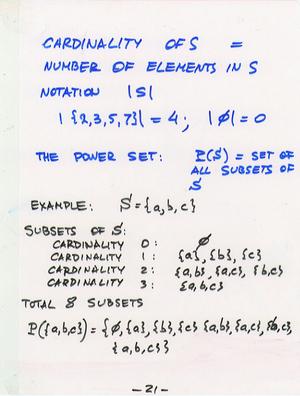 CARDINALITY OF S =
NUMBER OF ELEMENTS IN S
NOTATION |S|
|{2,3,5,7}| = 4; |∅| = 0
THE POWER SET: P(S) = SET OF
ALL SUBSETS OF
S
EXAMPLE: S={a,b,c}
SUBSETS OF S:
CARDINALITY 0: ∅
CARDINALITY 1: {a}, {b}, {c}
CARDINALITY 2: {a,b}, {a,c}, {b,c}
CARDINALITY 3: {a,b,c}
TOTAL 8 SUBSETS
P({a,b,c}) = {∅,{a},{b},{c} {a,b},{a,c},{b,c},
{a,b,c}}
-21-